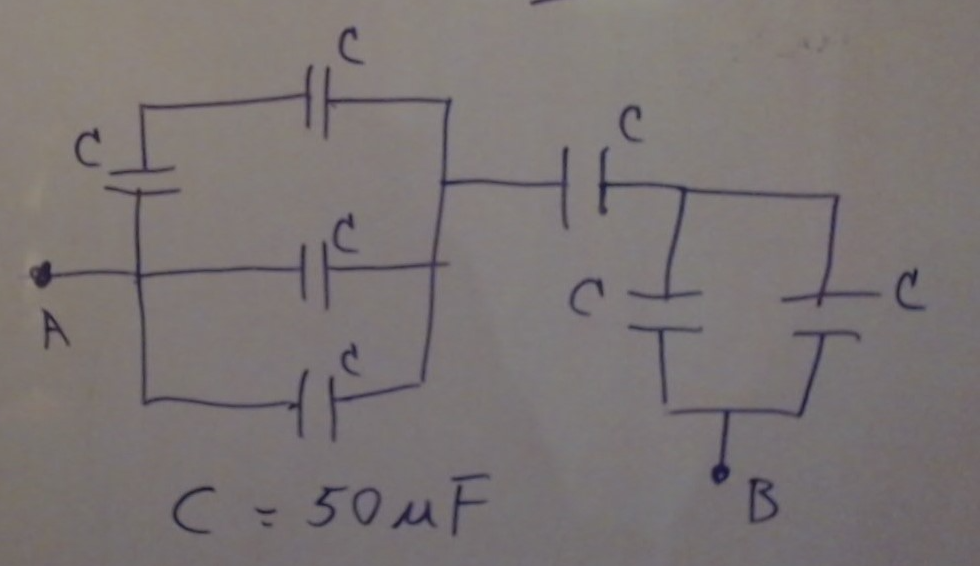 C
C
C
C
C
C
C
A
B
C = 50 μF